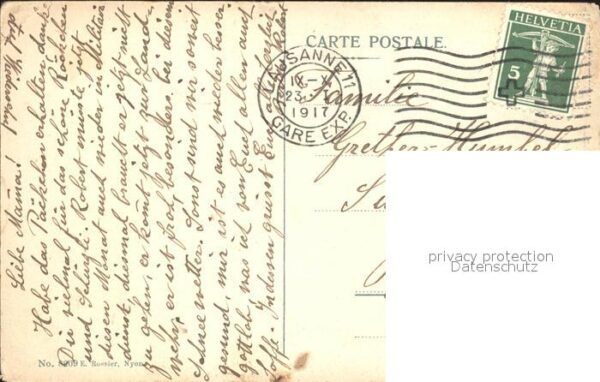 Liebe Mama!
Habe das Päckchen erhalten, danke
Dir vielmal für das schöne Röckchen
und Robert musste jetzt
diesen Monat auch wieder in Militär
dienst, diesmal braucht er jetzt nicht
zu gehen, er kommt jetzt zur Land-
wehr, er ist froh, besonders bei diesem
Schneewetter. Sonst sind wir soweit
gesund, mir ist es auch wieder besser
gottlob, was ich von Euch allen auch
hoffe. Indessen grüsst Euch herzlich
CARTE POSTALE.
LAUSANNE 11
IX-X
23
1917
GARE EXP.
HELVETIA
5
Familie
privacy protection
Datenschutz
No. 8209 E. Rossier, Nyon